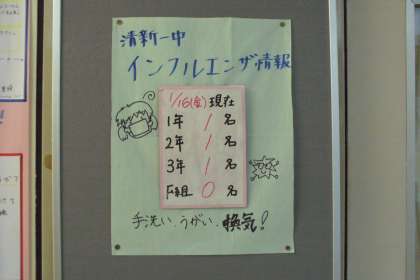 清新一中
インフルエンザ情報
1/16(金)現在
1年 1名
2年 1名
3年 1名
F組 0名
手洗い、うがい、換気!